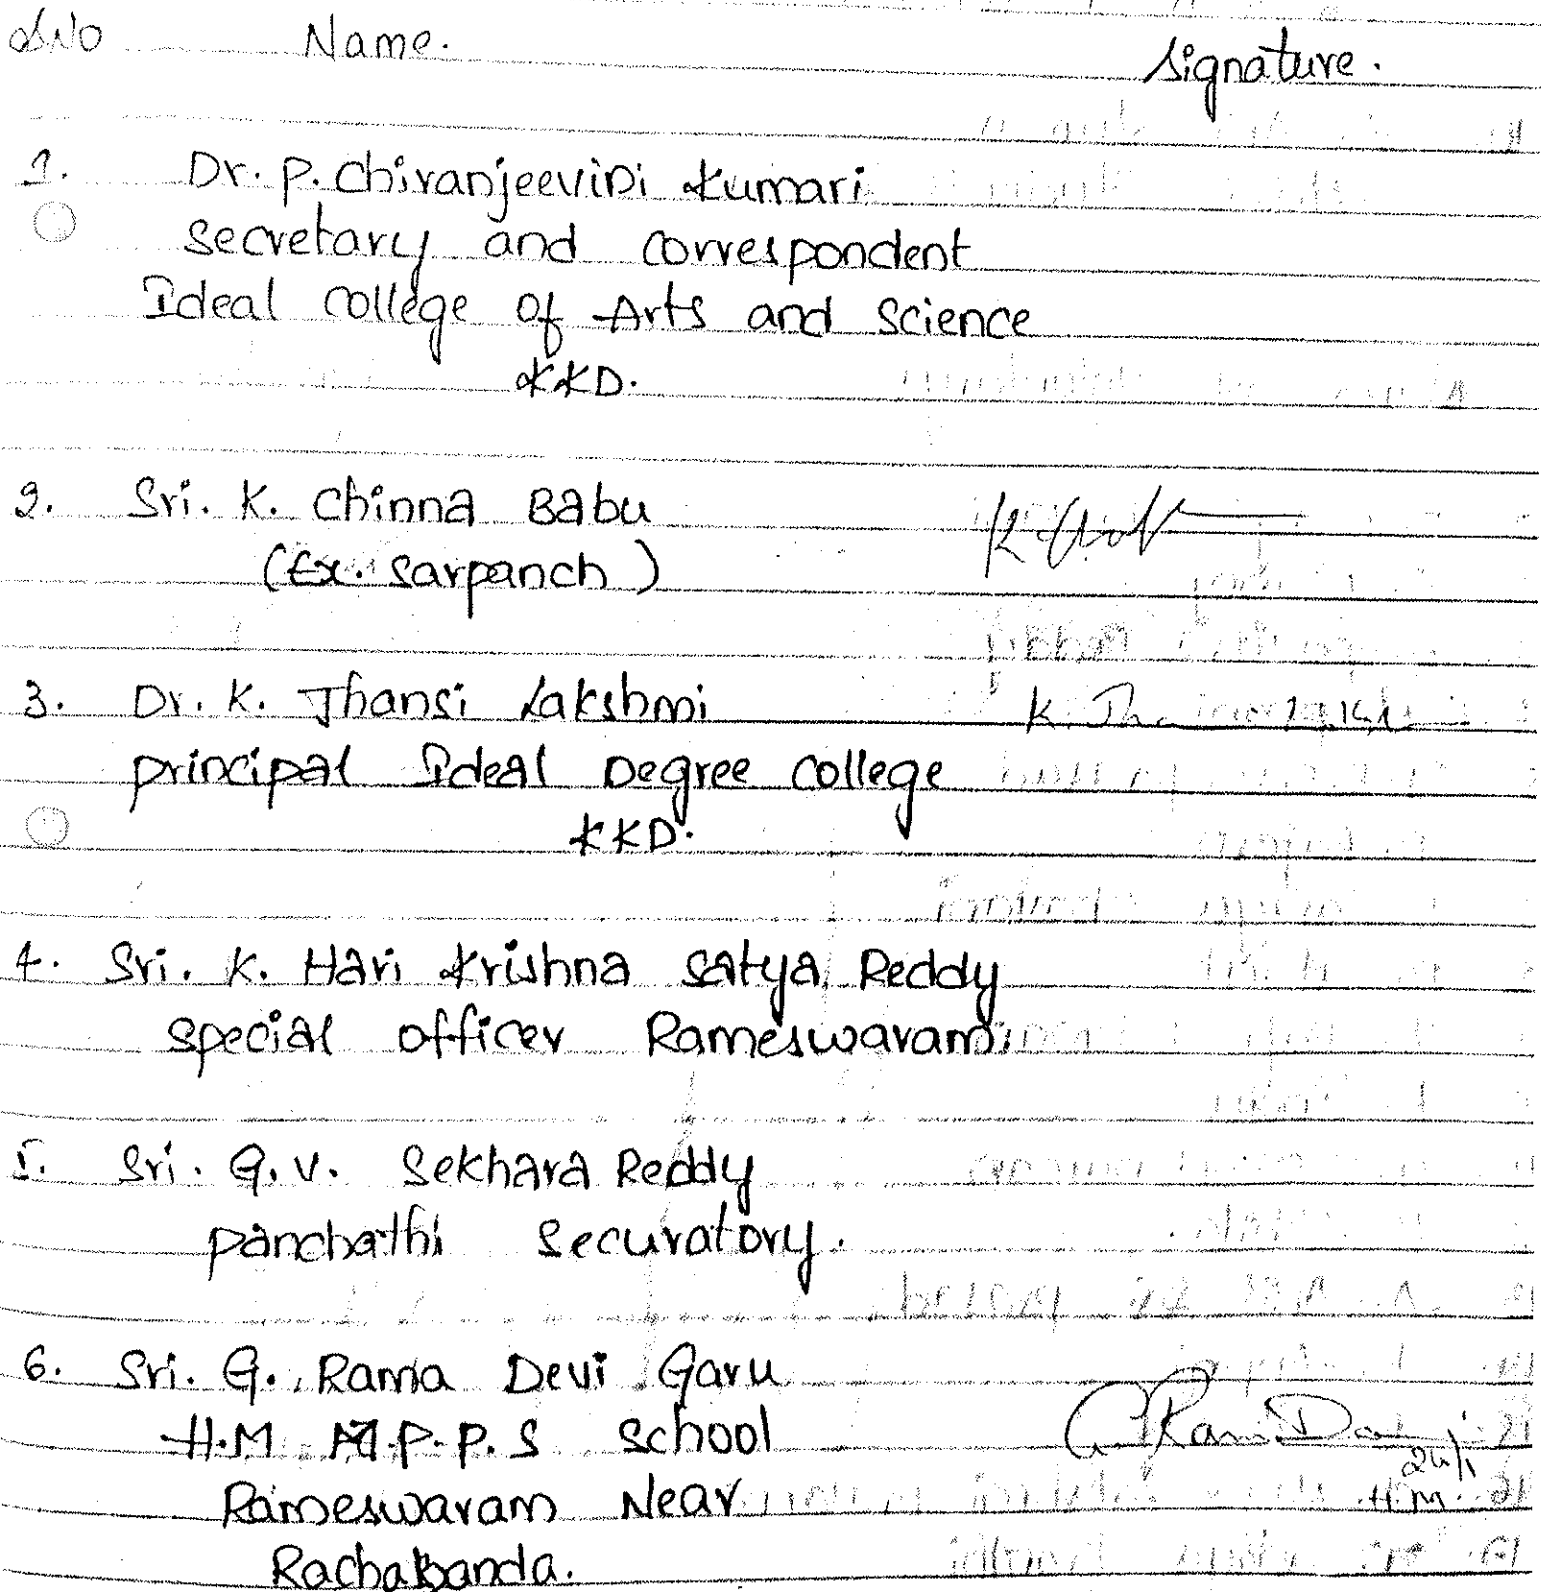 SNO Name. Signature.
1. Dr. P. Chiranjeevini Kumari
Secretary and correspondent
Ideal college of Arts and Science
KKD.
2. Sri. K. Chinna Babu
(Ex. Sarpanch)
3. Dr. K. Jhansi Lakshmi K. Jhansi Laksh
principal Ideal Degree college
KKD.
4. Sri. K. Hari Krishna Satya Reddy
Special officer Rameswaram
5. Sri. G. V. Sekhara Reddy
panchathi Securatory.
6. Sri. G. Rama Devi Garu
H.M M.P.P.S School G Rama Devi
24/1
Rameswaram Near H.M.
Rachabanda.